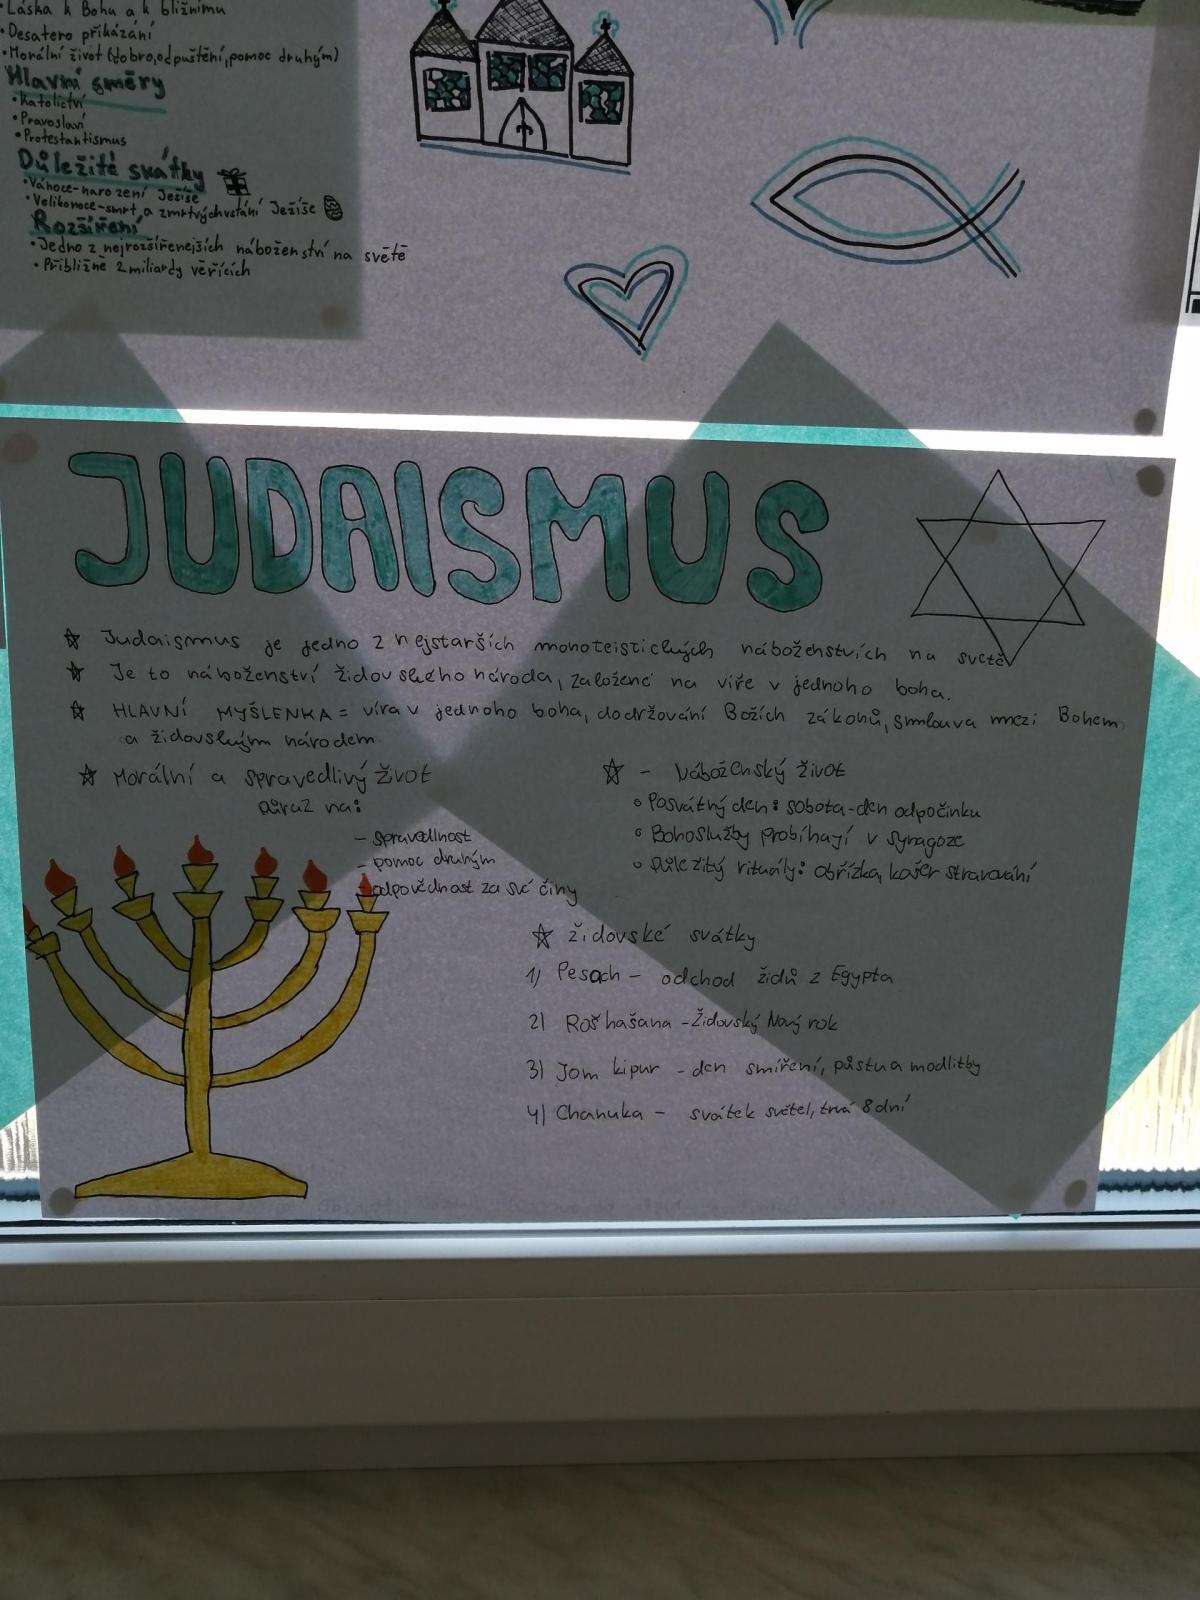 • Láska k Bohu a k bližnímu
• Desatero přikázání
• Morální život (dobro, odpuštění, pomoc druhým)
Hlavní směry
• Katolictví
• Pravoslaví
• Protestantismus
Důležité svátky
• Vánoce - narození Ježíše
• Velikonoce - smrt a zmrtvýchvstání Ježíše
Rozšíření
• Jedno z nejrozšířenejších náboženství na světě
• Přibližně 2 miliardy věřících
JUDAISMUS
Judaismus je jedno z nejstarších monoteistických náboženstvích na světě
Je to náboženství židovského národa, založené na víře v jednoho boha.
HLAVNÍ MYŠLENKA = víra v jednoho boha, dodržování Božích zákonů, smlouva mezi Bohem
a židovským národem
Morální a spravedlivý život
Důraz na:
- spravedlnost
- pomoc druhým
- odpovědnost za své činy
- Náboženský život
• Posvátný den: sobota - den odpočinku
• Bohoslužby probíhají v synagoze
• Důležitý rituály: obřízka, košer stravování
židovské svátky
1) Pesach - odchod židů z Egypta
2) Roš hašana - Židovský Nový rok
3) Jom kipur - den smíření, půstu a modlitby
4) Chanuka - svátek světel, trvá 8 dní